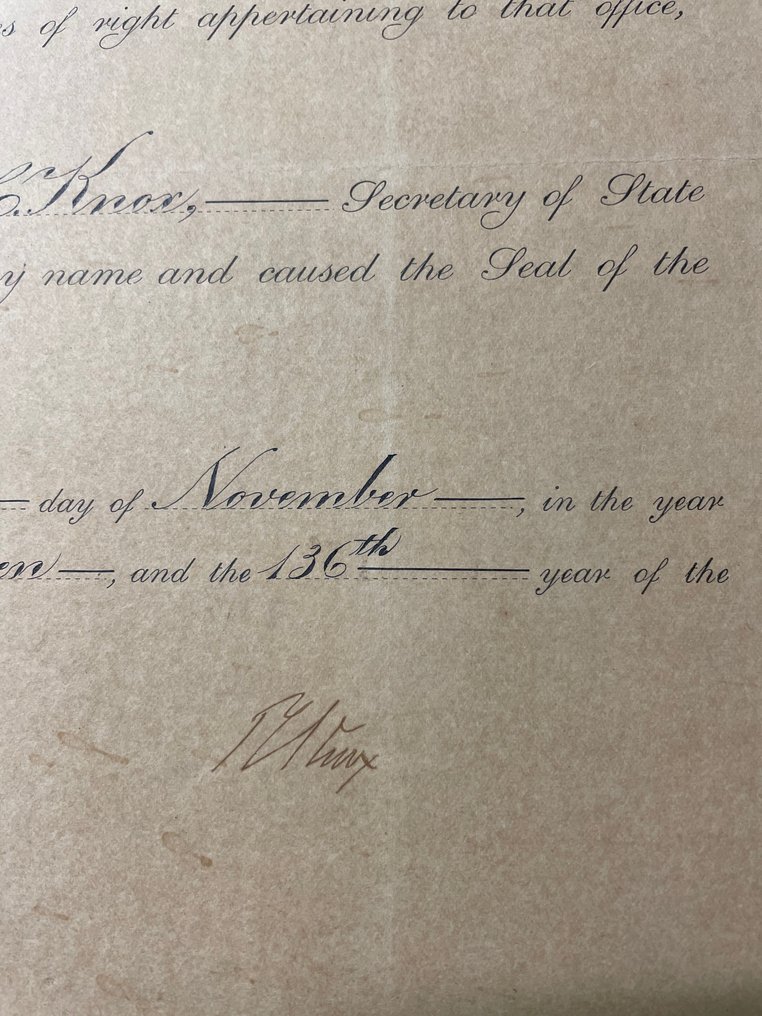 s of right appertaining to that office,
C. Knox, Secretary of State
y name and caused the Seal of the
day of November, in the year
en, and the 136th year of the
P C Knox